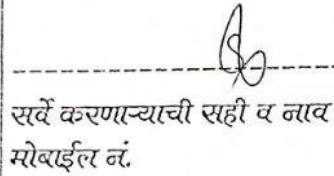 सर्वे करणाऱ्याची सही व नाव
मोबाईल नं.